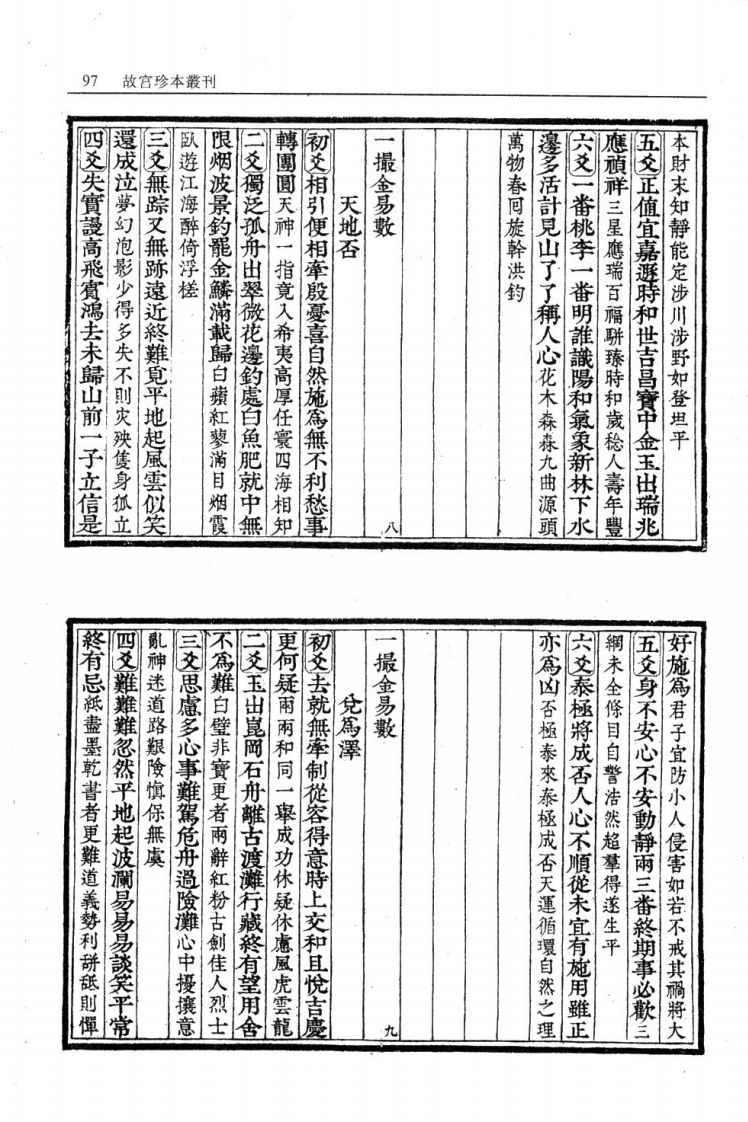 97 故宫珍本叢刊
本財末知靜能定涉川涉野如登坦平
五爻正值宜嘉遯時和世吉昌寶中金玉出瑞兆
應禎祥三星應瑞百福駢臻時和歲稔人壽年豐
六爻一番桃李一番明誰識陽和氣象新林下水
邊多活計見山了了稱人心花木森森九曲源頭
萬物春囘旋斡洪鈞
一撮金易數
八
天地否
初爻相引便相牽殷憂喜自然施爲無不利愁事
轉團圓天神一指竟入希夷高厚任寰四海相知
二爻獨泛孤舟出翠微花邊釣處白魚肥就中無
限烟波景釣罷金鱗滿載歸白蘋紅蓼滿目烟霞
臥遊江海醉倚浮槎
三爻無踪又無跡遠近終難覓平地起風雲似笑
還成泣夢幻泡影少得多失不則灾殃隻身孤立
四爻失實謾高飛賓鴻去未歸山前一子立信是
好施爲君子宜防小人侵害如若不戒其禍將大
五爻身不安心不安動靜兩三番終期事必歡三
綱未全條目自警浩然超羣得遂生平
六爻泰極將成否人心不順從未宜有施用雖正
亦爲凶否極泰來泰極成否天運循環自然之理
一撮金易數
九
兌爲澤
初爻去就無牽制從容得意時上交和且悅吉慶
更何疑兩兩和同一舉成功休疑休慮風虎雲龍
二爻玉出崑岡石舟離古渡灘行藏終有望用舍
不爲難白璧非寶更者兩辭紅粉古劍佳人烈士
三爻思慮多心事難駕危舟過險灘心中擾攘意
亂神迷道路艱險愼保無虞
四爻難難難忽然平地起波瀾易易易談笑平常
終有忌紙盡墨乾書者更難道義勢利誁舐則憚